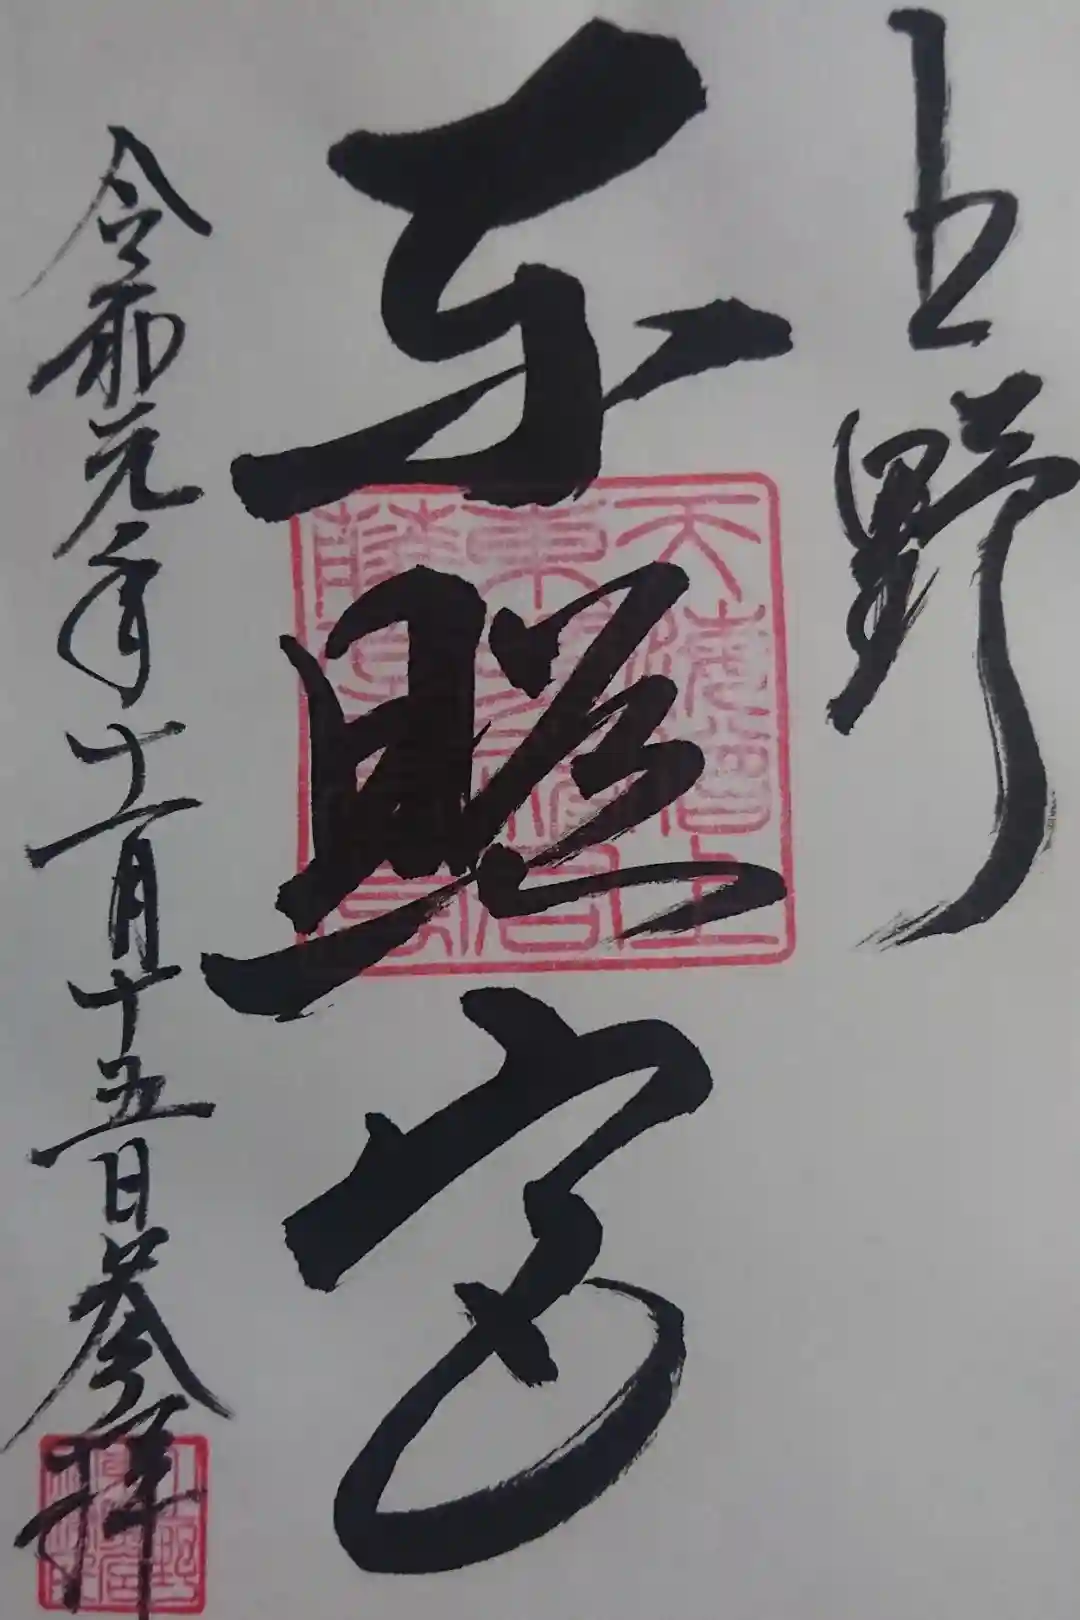 上野
東照宮
令和元年十一月十五日参拝